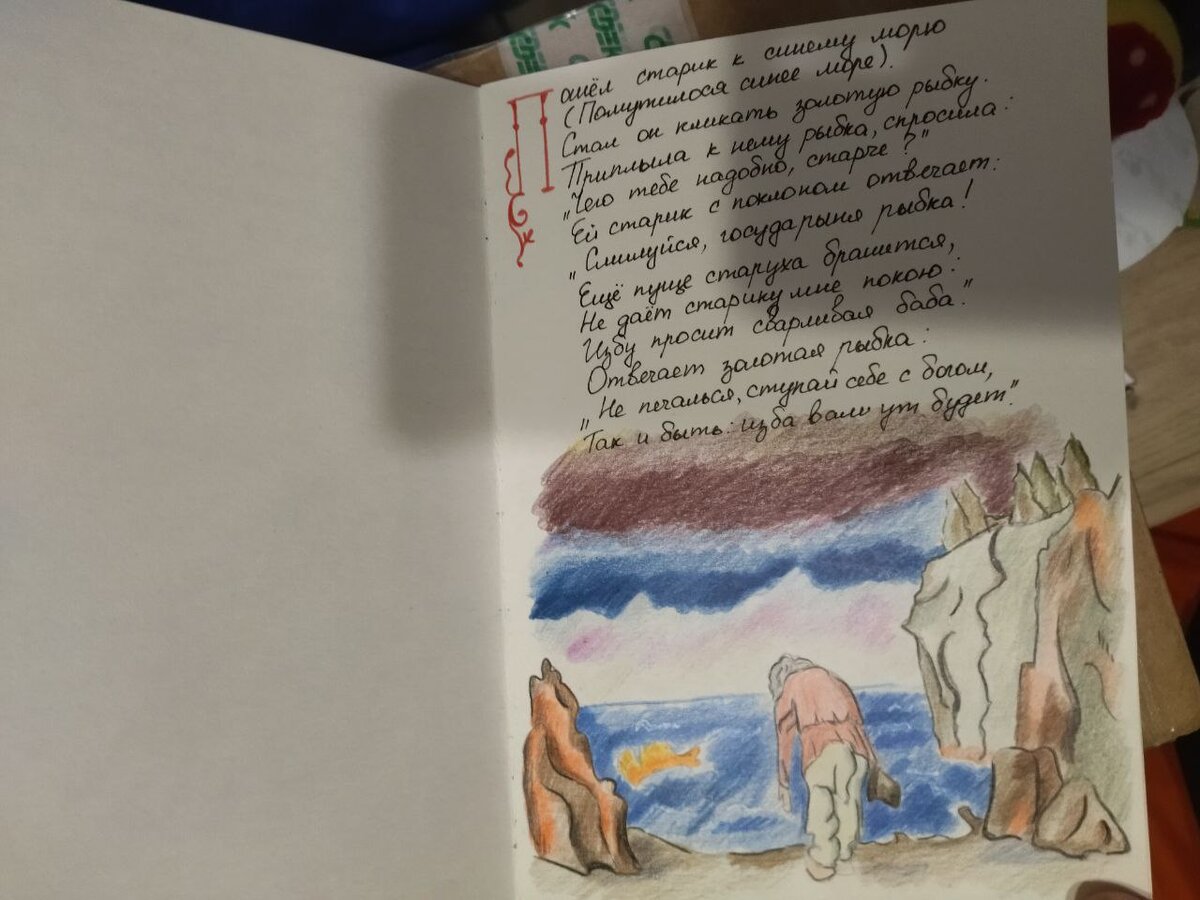 Пошёл старик к синему морю
(Помутилося синее море).
Стал он кликать золотую рыбку.
Приплыла к нему рыбка, спросила:
„Чего тебе надобно, старче?"
Ей старик с поклоном отвечает:
„Смилуйся, государыня рыбка!
Ещё пуще старуха бранится,
Не даёт старику мне покою:
Избу просит сварливая баба."
Отвечает золотая рыбка:
„Не печалься, ступай себе с богом,
Так и быть: изба вам уж будет".